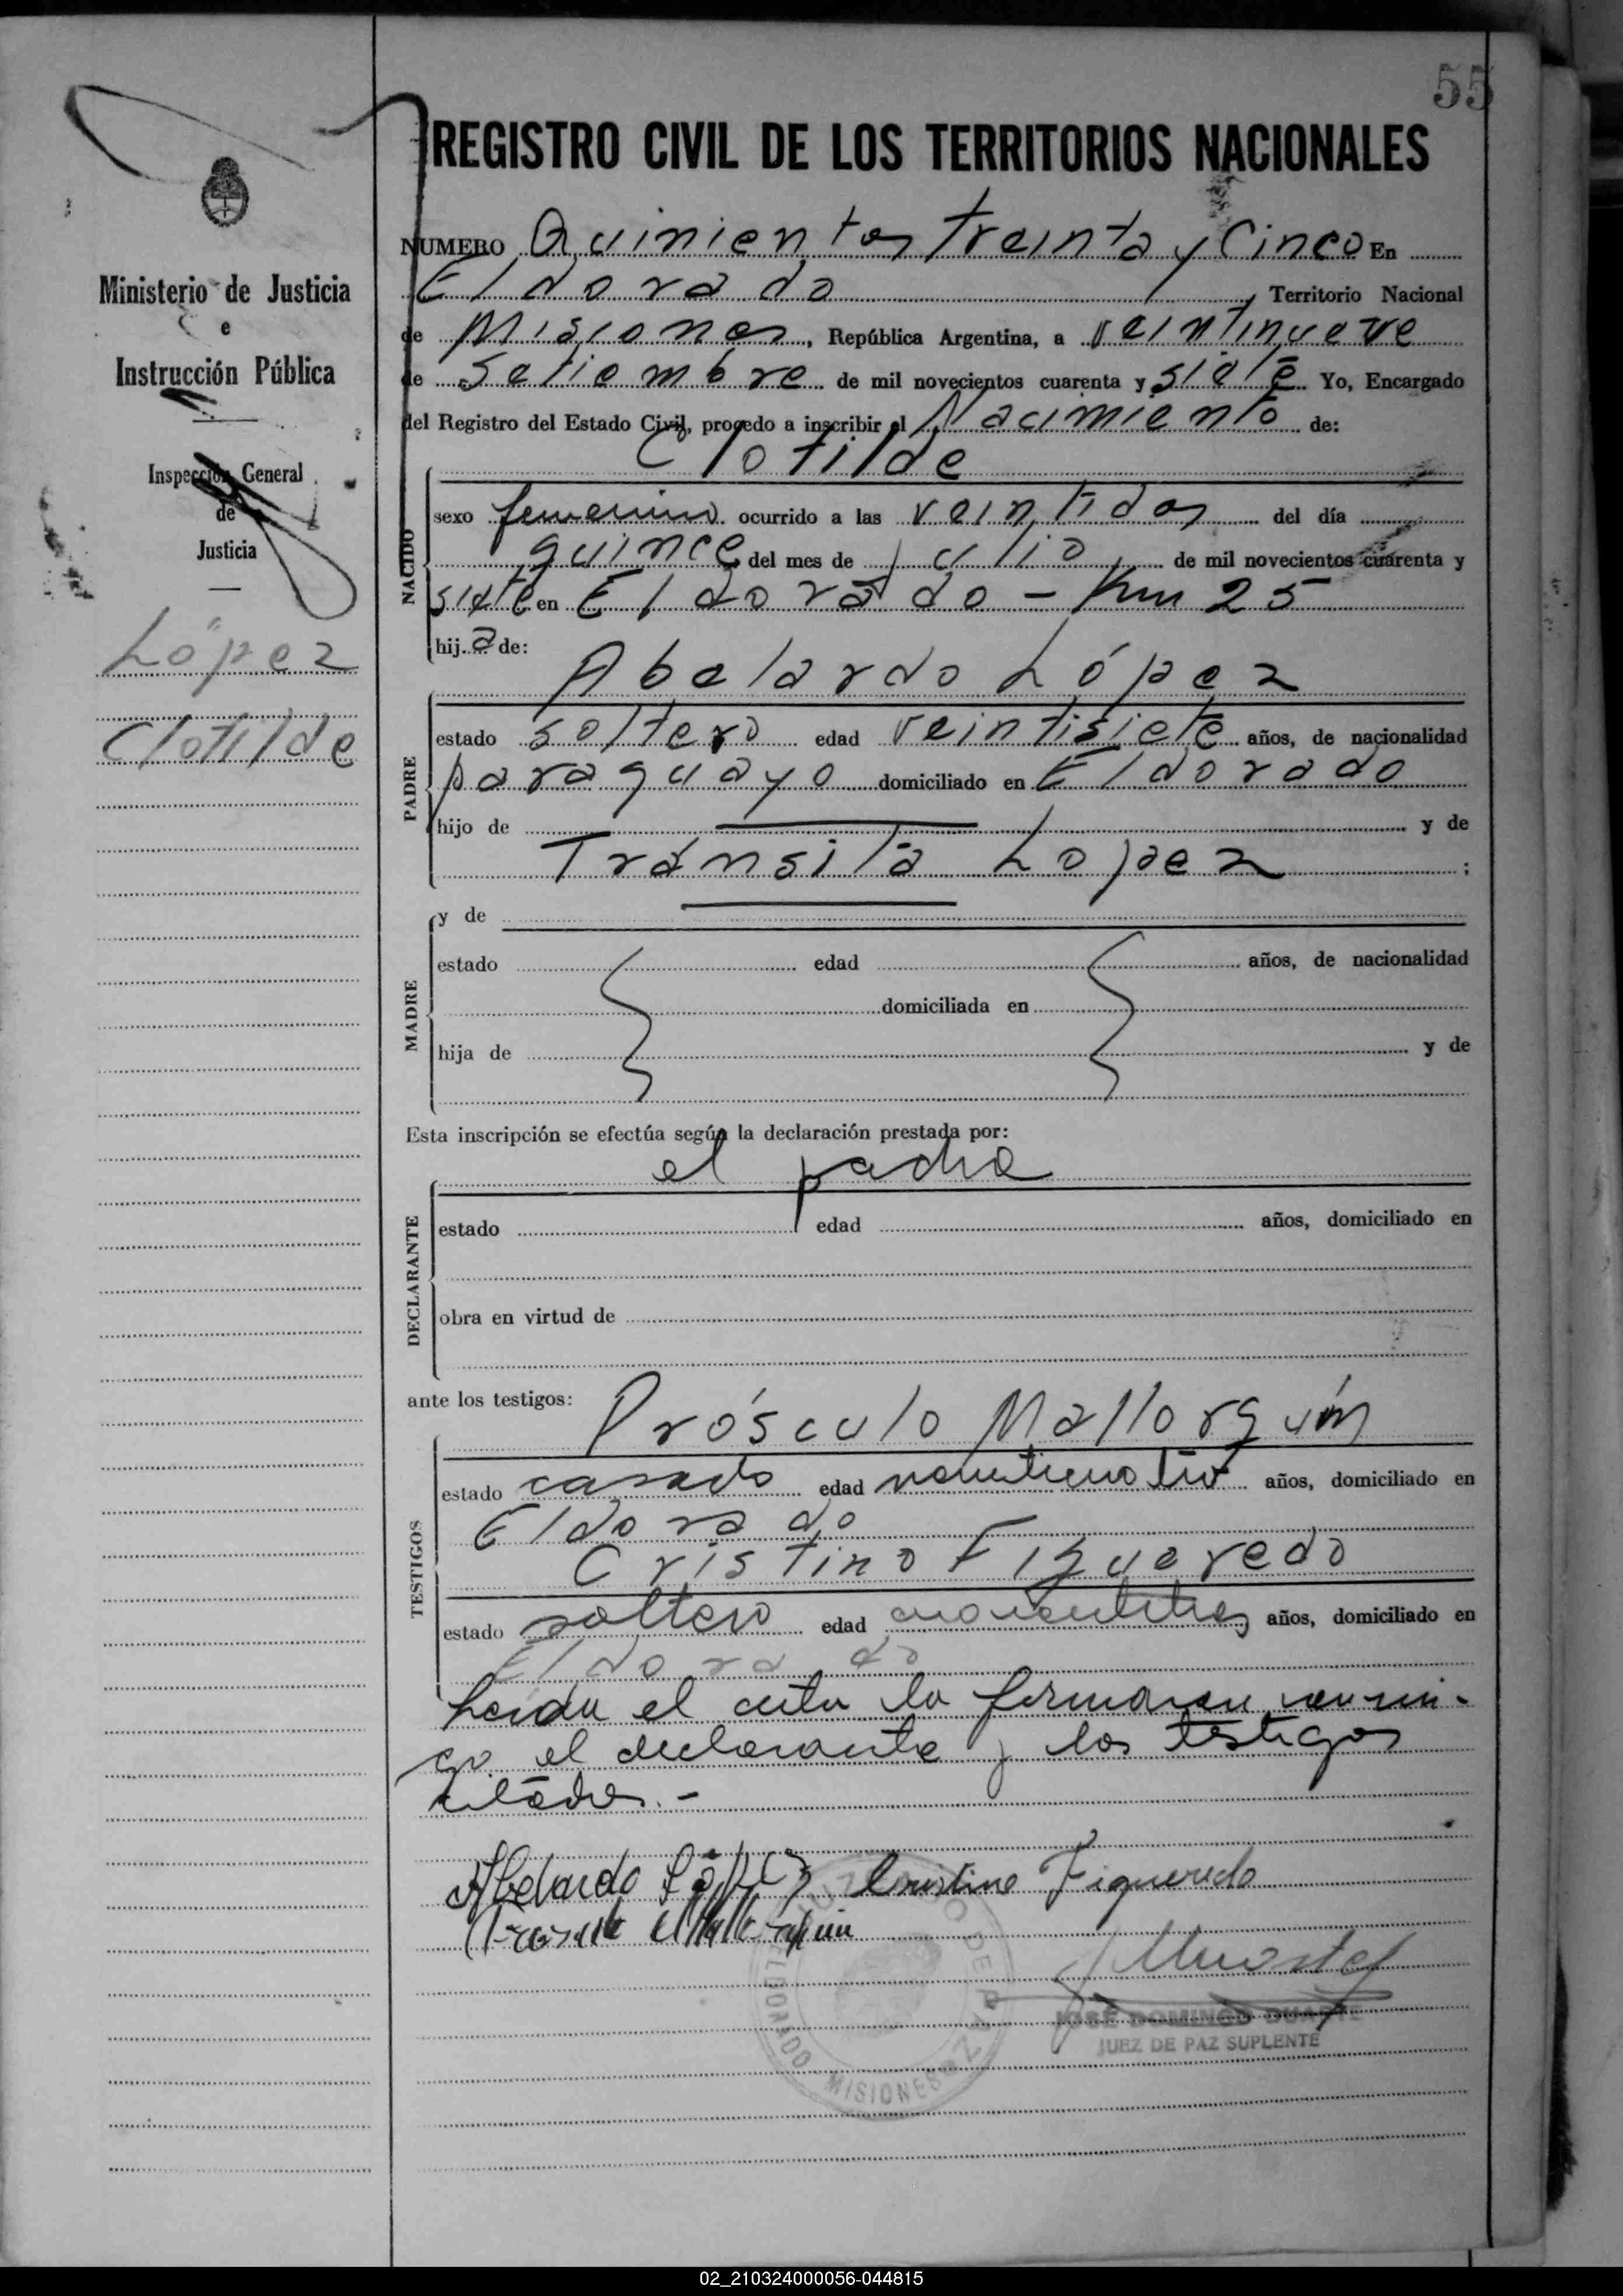 55
REGISTRO CIVIL DE LOS TERRITORIOS NACIONALES
Ministerio de Justicia
e
Instrucción Pública
Inspección General
de
Justicia
López
Clotilde
NUMERO Quinientos treinta y Cinco En
Eldorado, Territorio Nacional
de Misiones, República Argentina, a veintinueve
de Setiembre de mil novecientos cuarenta y siete Yo, Encargado
del Registro del Estado Civil, procedo a inscribir el Nacimiento de:
Clotilde
NACIDO
sexo femenino ocurrido a las veintidos del día
quince del mes de julio de mil novecientos cuarenta y
siete en Eldorado - Km 25
hija de:
Abelardo López
PADRE
estado soltero edad veintisiete años, de nacionalidad
paraguayo domiciliado en Eldorado
hijo de y de
Tránsita Lopez ;
MADRE
y de
estado edad años, de nacionalidad
domiciliada en
hija de y de
Esta inscripción se efectúa según la declaración prestada por:
el padre
DECLARANTE
estado edad años, domiciliado en
obra en virtud de
ante los testigos:
Prósculo Mallorquín
TESTIGOS
estado casado edad años, domiciliado en
Eldorado
Cristino Figueredo
estado soltero edad años, domiciliado en
Eldorado
Leida el acta la firmaron conmi-
go el declarante y los testigos
citados.-
Abelardo López Cristino Figueredo
Mallorquin
JOSÉ DOMINGO DUARTE
JUEZ DE PAZ SUPLENTE
ELDORADO MISIONES
02_210324000056-044815